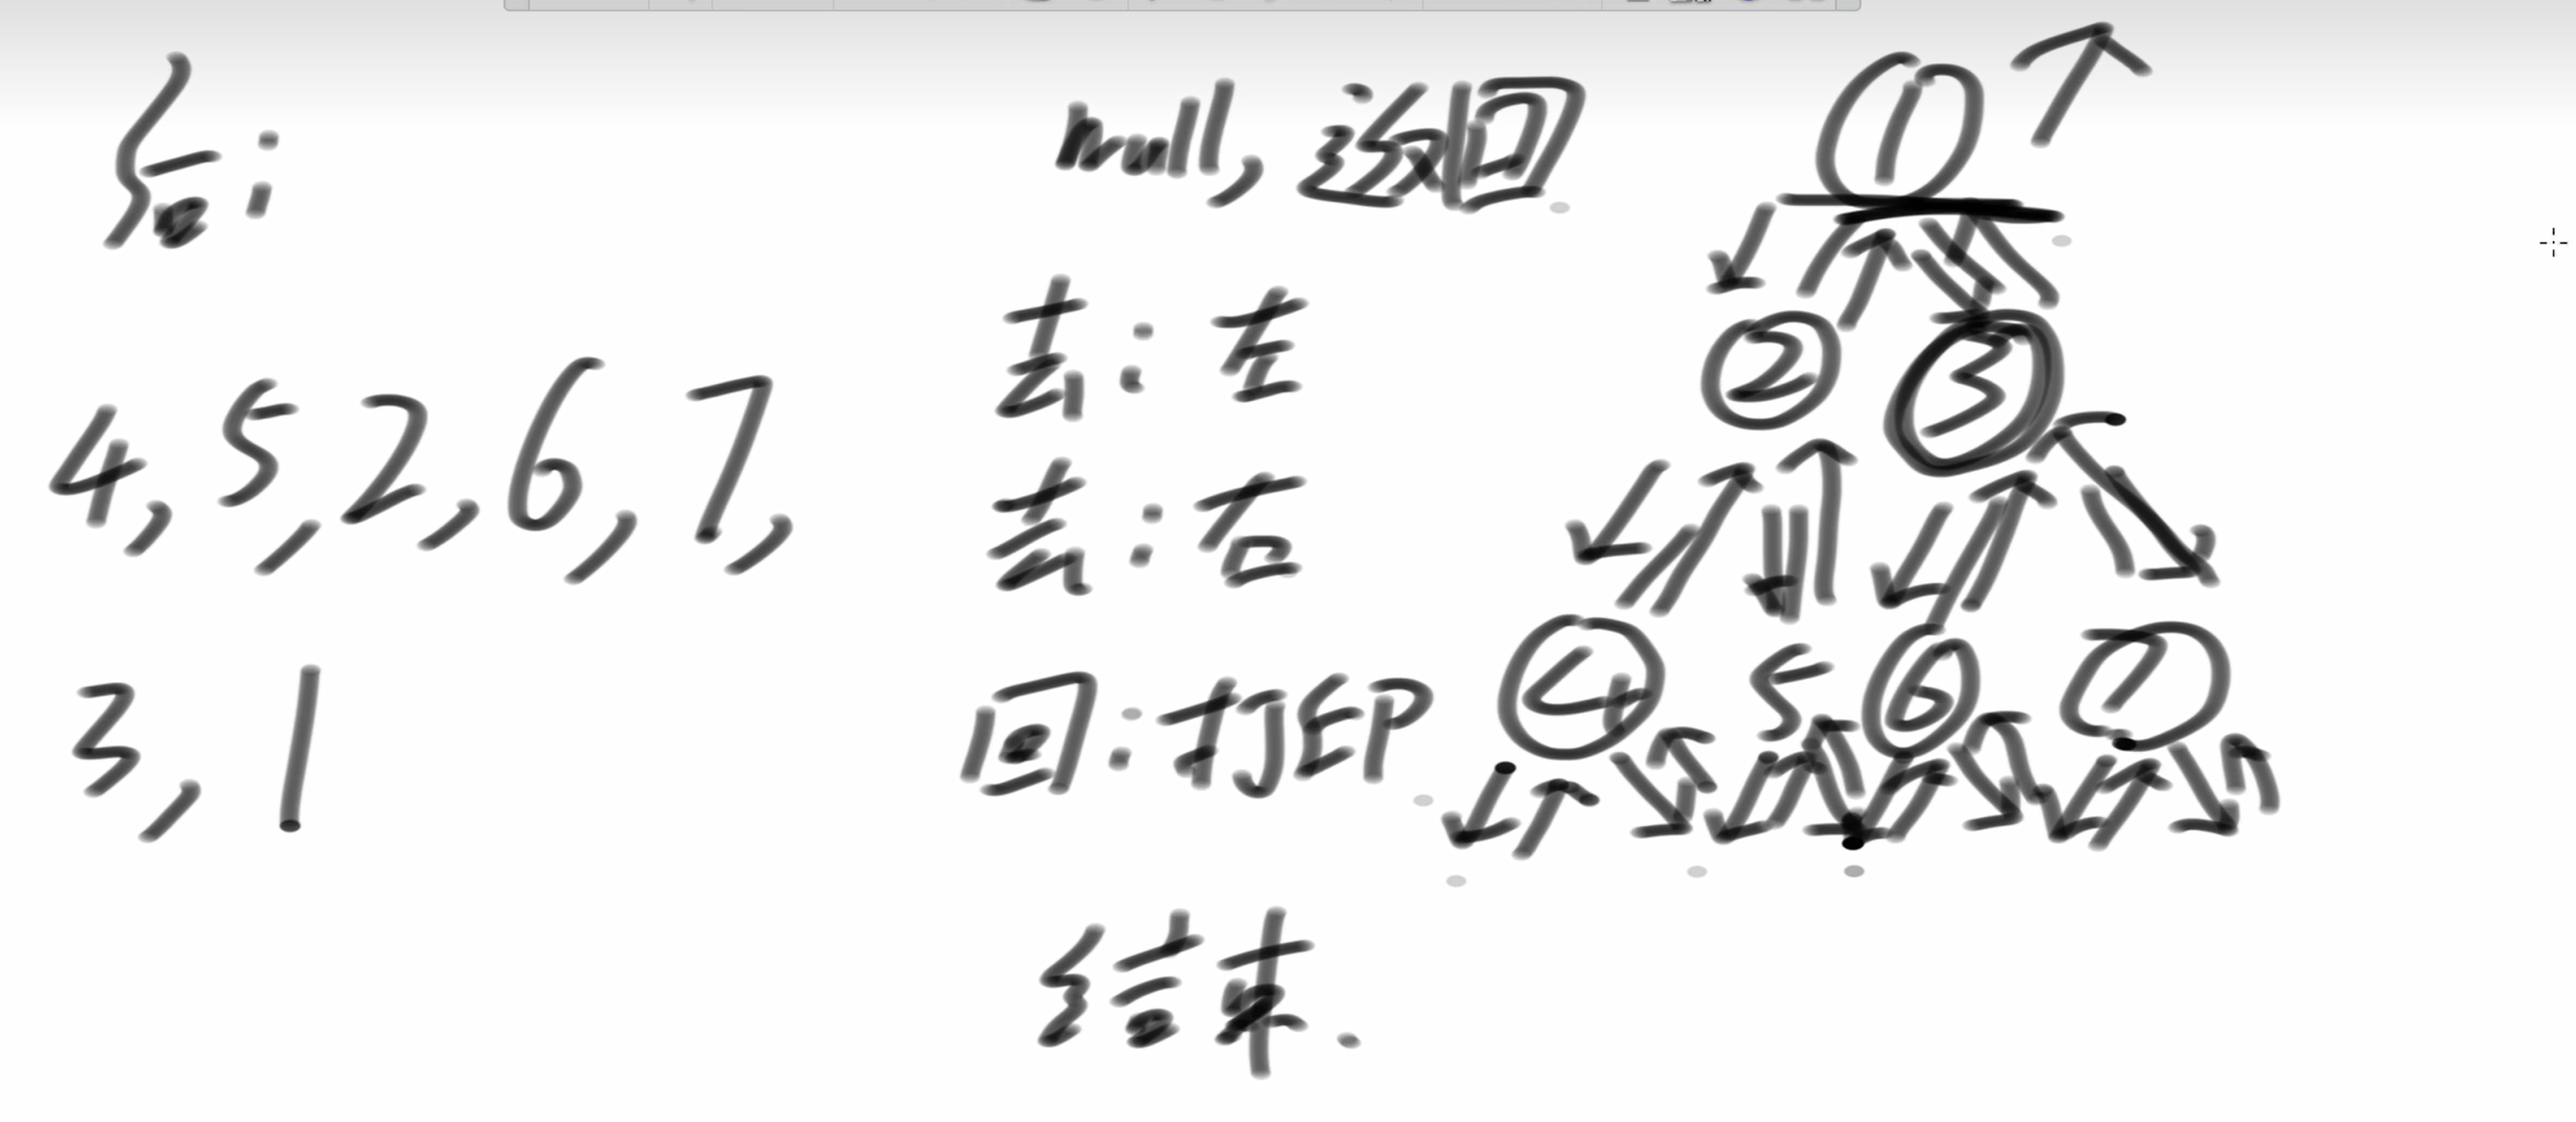 后:
4,5,2,6,7,
3,1
null,返回
去:左
去:右
回:打印
结束.
1
2 3
4 5 6 7